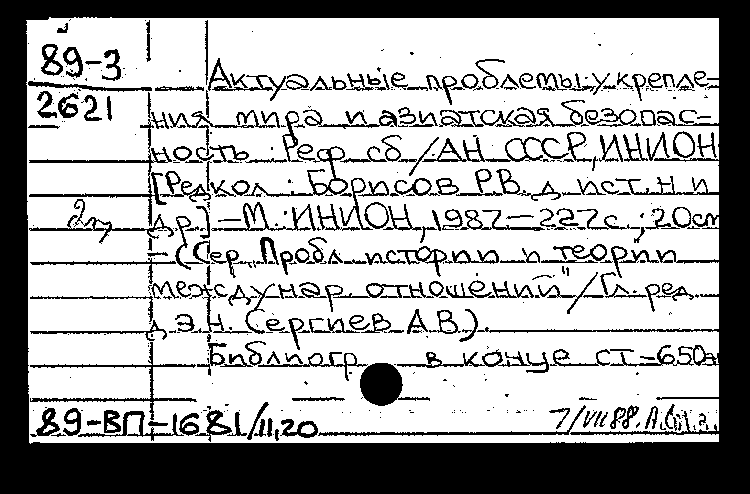 89-3
2621
Актуальные проблемы укрепле-
ния мира и азиатская безопас-
ность : Реф. сб / АН СССР, ИНИОН
[Редкол : Борисов Р.В. д. ист. н и
др.] – М. : ИНИОН, 1987 – 227с ; 20см
– (Сер "Пробл истории и теории
междунар отношений" / Гл. ред
д.э.н. Сергиев А.В.).
Библиогр в конце ст – 650
89-ВП-1681/11,20
7/VII 88.